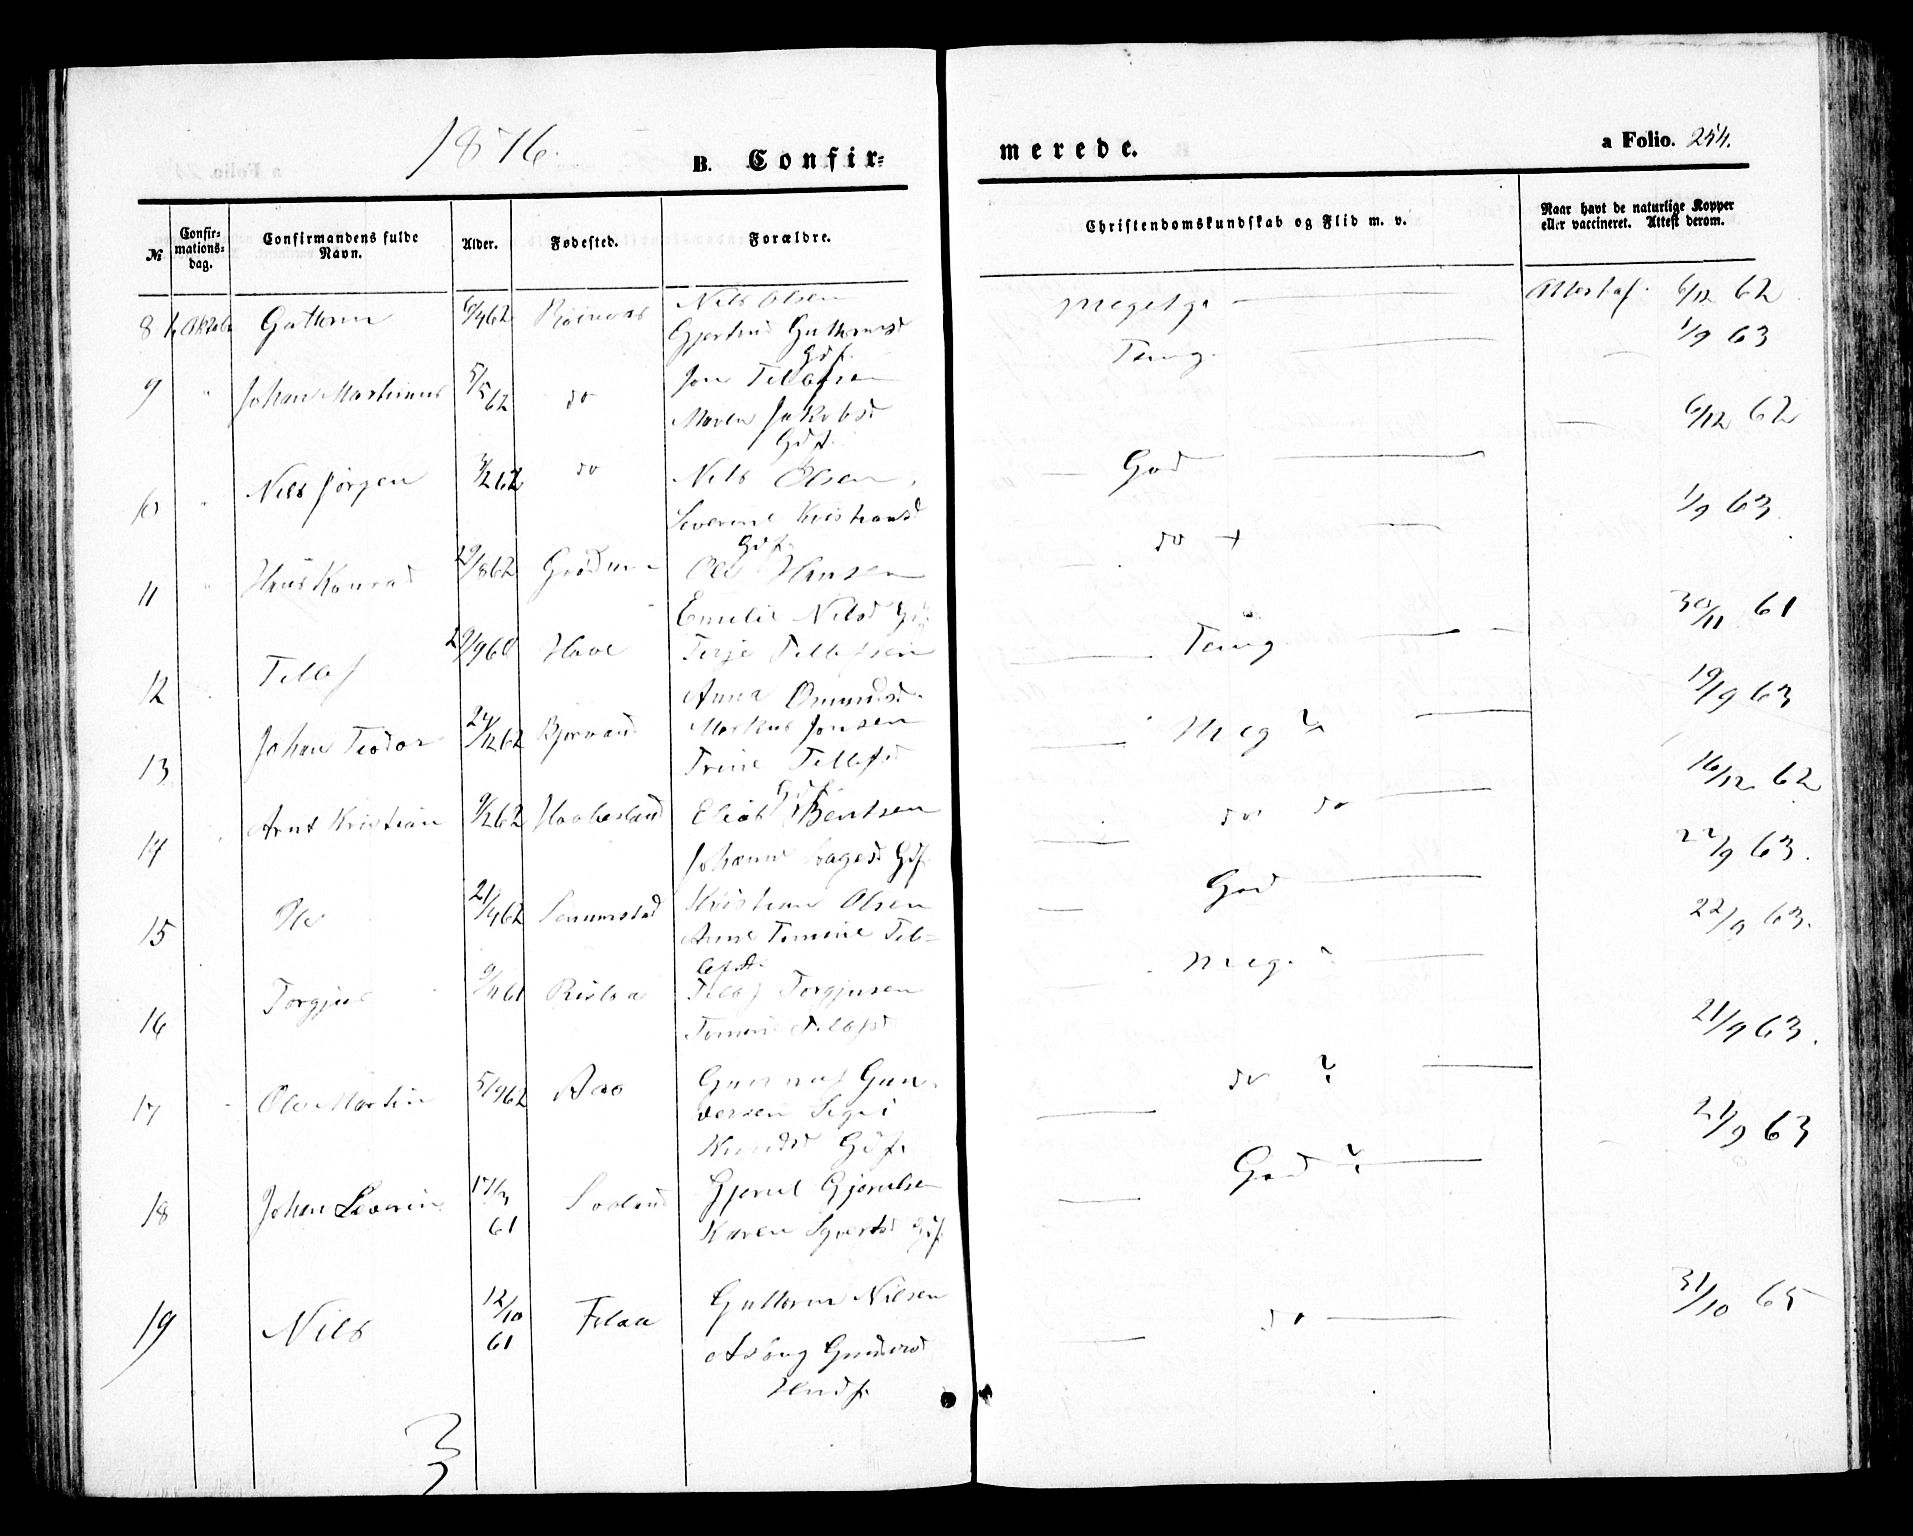 1876.
B. Confir=
merede.
a Folio. 254.
№
Confir=
mations=
dag.
Confirmandens fulde
Navn.
Alder.
Fødested.
Forældre.
Christendomskundskab og Flid m. v.
Naar havt de naturlige Kopper
eller vaccineret. Attest derom.
8 Guttorm 6/4 62 Nils Olsen
Gjertrud Guttormsd
Gdf.
6/12 62
9 Johan Martinius 5/5 62 do Jon Tellefsen
Maren Jakobsd
Gdf.
Temg. 1/9 63
10 Nils Jørgen 62 do Nils Olsen
Severine Kristiansd
Gdf.
God 6/12 62
11 Hans Konrad 29/8 62 Ole Hansen
Emilie Nilsd Gdf.
do + 1/9 63
12 Tellef 29/9 60 Have Terje Tellefsen
Anna Omundsd.
Temg. 30/11 61
13 Johan Teodor 24/12 62 Bjorvand Markus Jonsen
Trine Tellefsd
Gdf.
Meg 19/9 63
14 Arnt Kristian 9/2 62 Haabesland Elias Bentsen
Johanne Aagesd Gdf.
do do 16/12 62
15 Ole 21/4 62 Senumstad Kristian Olsen
Anne Tomine Tel=
lefsd.
God 22/9 63.
16 Torgjus 61 Rislaa Tellef Torgjusen
Tomine Tellefsd
Meg. 22/9 63.
17 Ole Martin 5/9 62 Aas Gunnuf Gun=
dersen Signi
Knudsd Gdf.
do 21/9 63.
18 Johan Severin 17/3
61 Gjerul Gjerulsen
Karen Syvertsd Gdf.
God 21/9 63
19 Nils 12/10
61 Flaa Guttorm Nilsen
Asborg Gundersd
Husf.
do 31/10 65
3